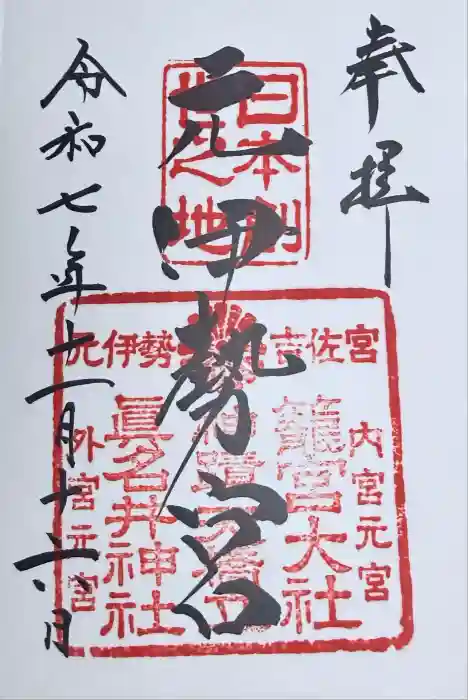 奉拝
日本創
世之地
元伊勢宮
元伊勢
吉佐宮
内宮元宮
籠宮大社
眞名井神社
外宮元宮
令和七年十一月十六日